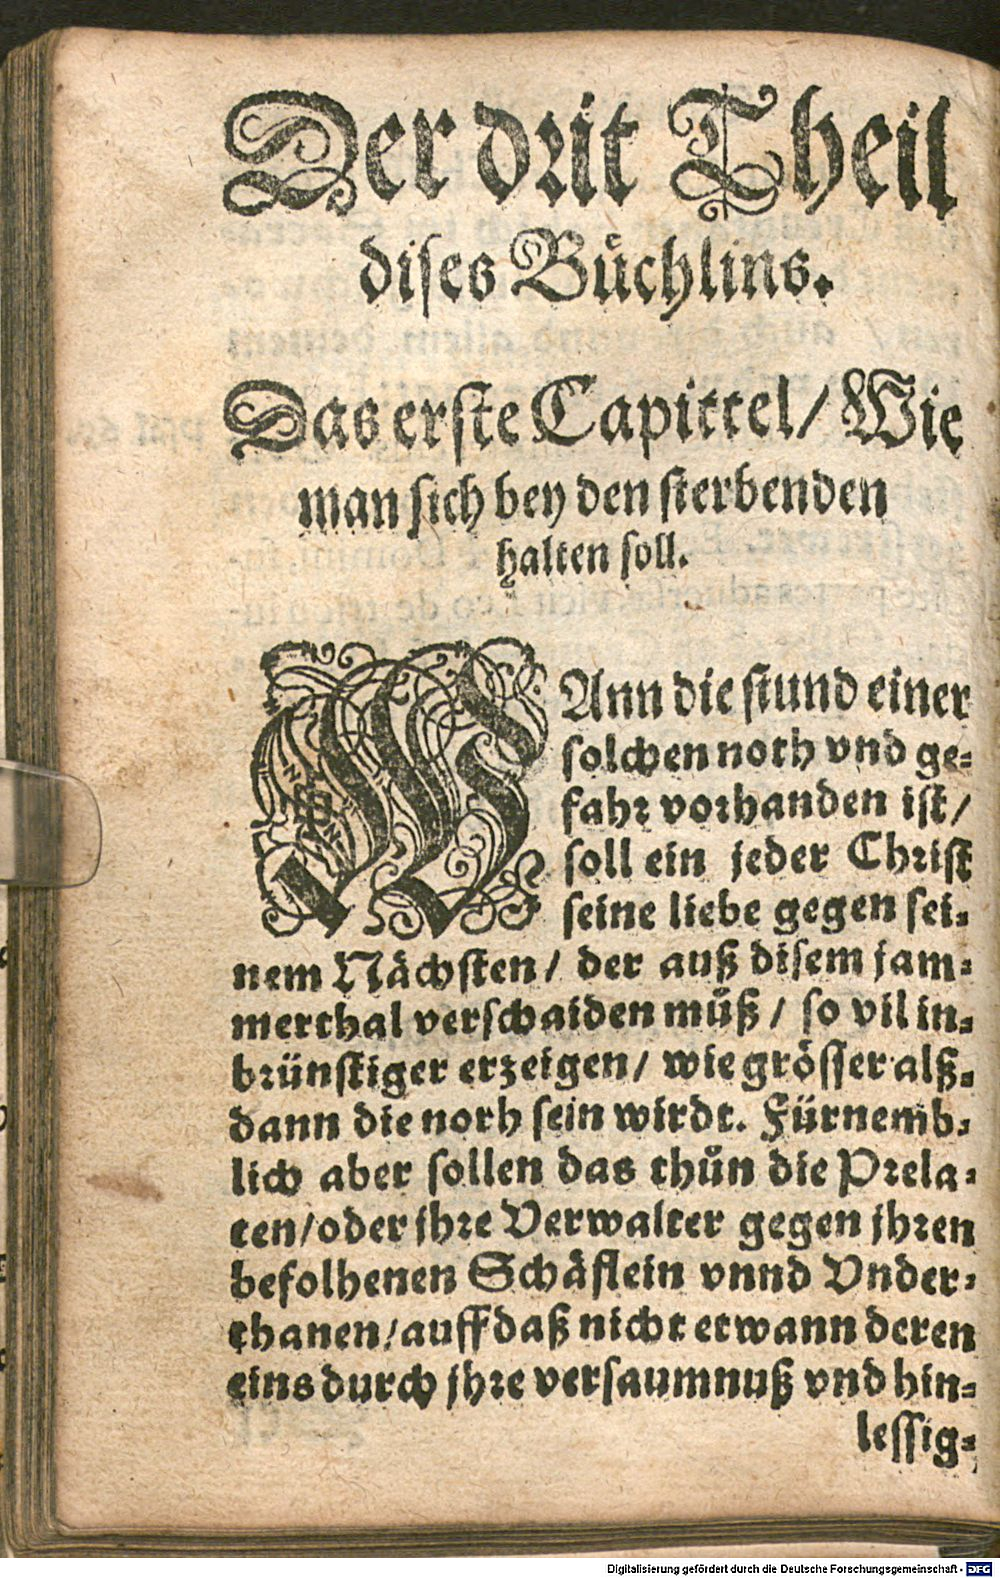 Der drit Theil
dises Bůchlins.
Das erste Capittel/ Wie
man sich bey den sterbenden
halten soll.
WAnn die stund einer
solchen noth vnd ge-
fahr vorhanden ist/
soll ein jeder Christ
seine liebe gegen sei-
nem Nächsten/ der auß disem jam-
merthal verschaiden můß/ so vil in-
brünstiger erzeigen/ wie grösser alß-
dann die noth sein wirdt. Fürnemb-
lich aber sollen das thůn die Prela-
ten/oder jhre Verwalter gegen jhren
befolhenen Schäflein vnnd Vnder-
thanen/auff daß nicht etwann deren
eins durch jhre versaumnuß vnd hin-
lessig-
Digitalisierung gefördert durch die Deutsche Forschungsgemeinschaft - DFG